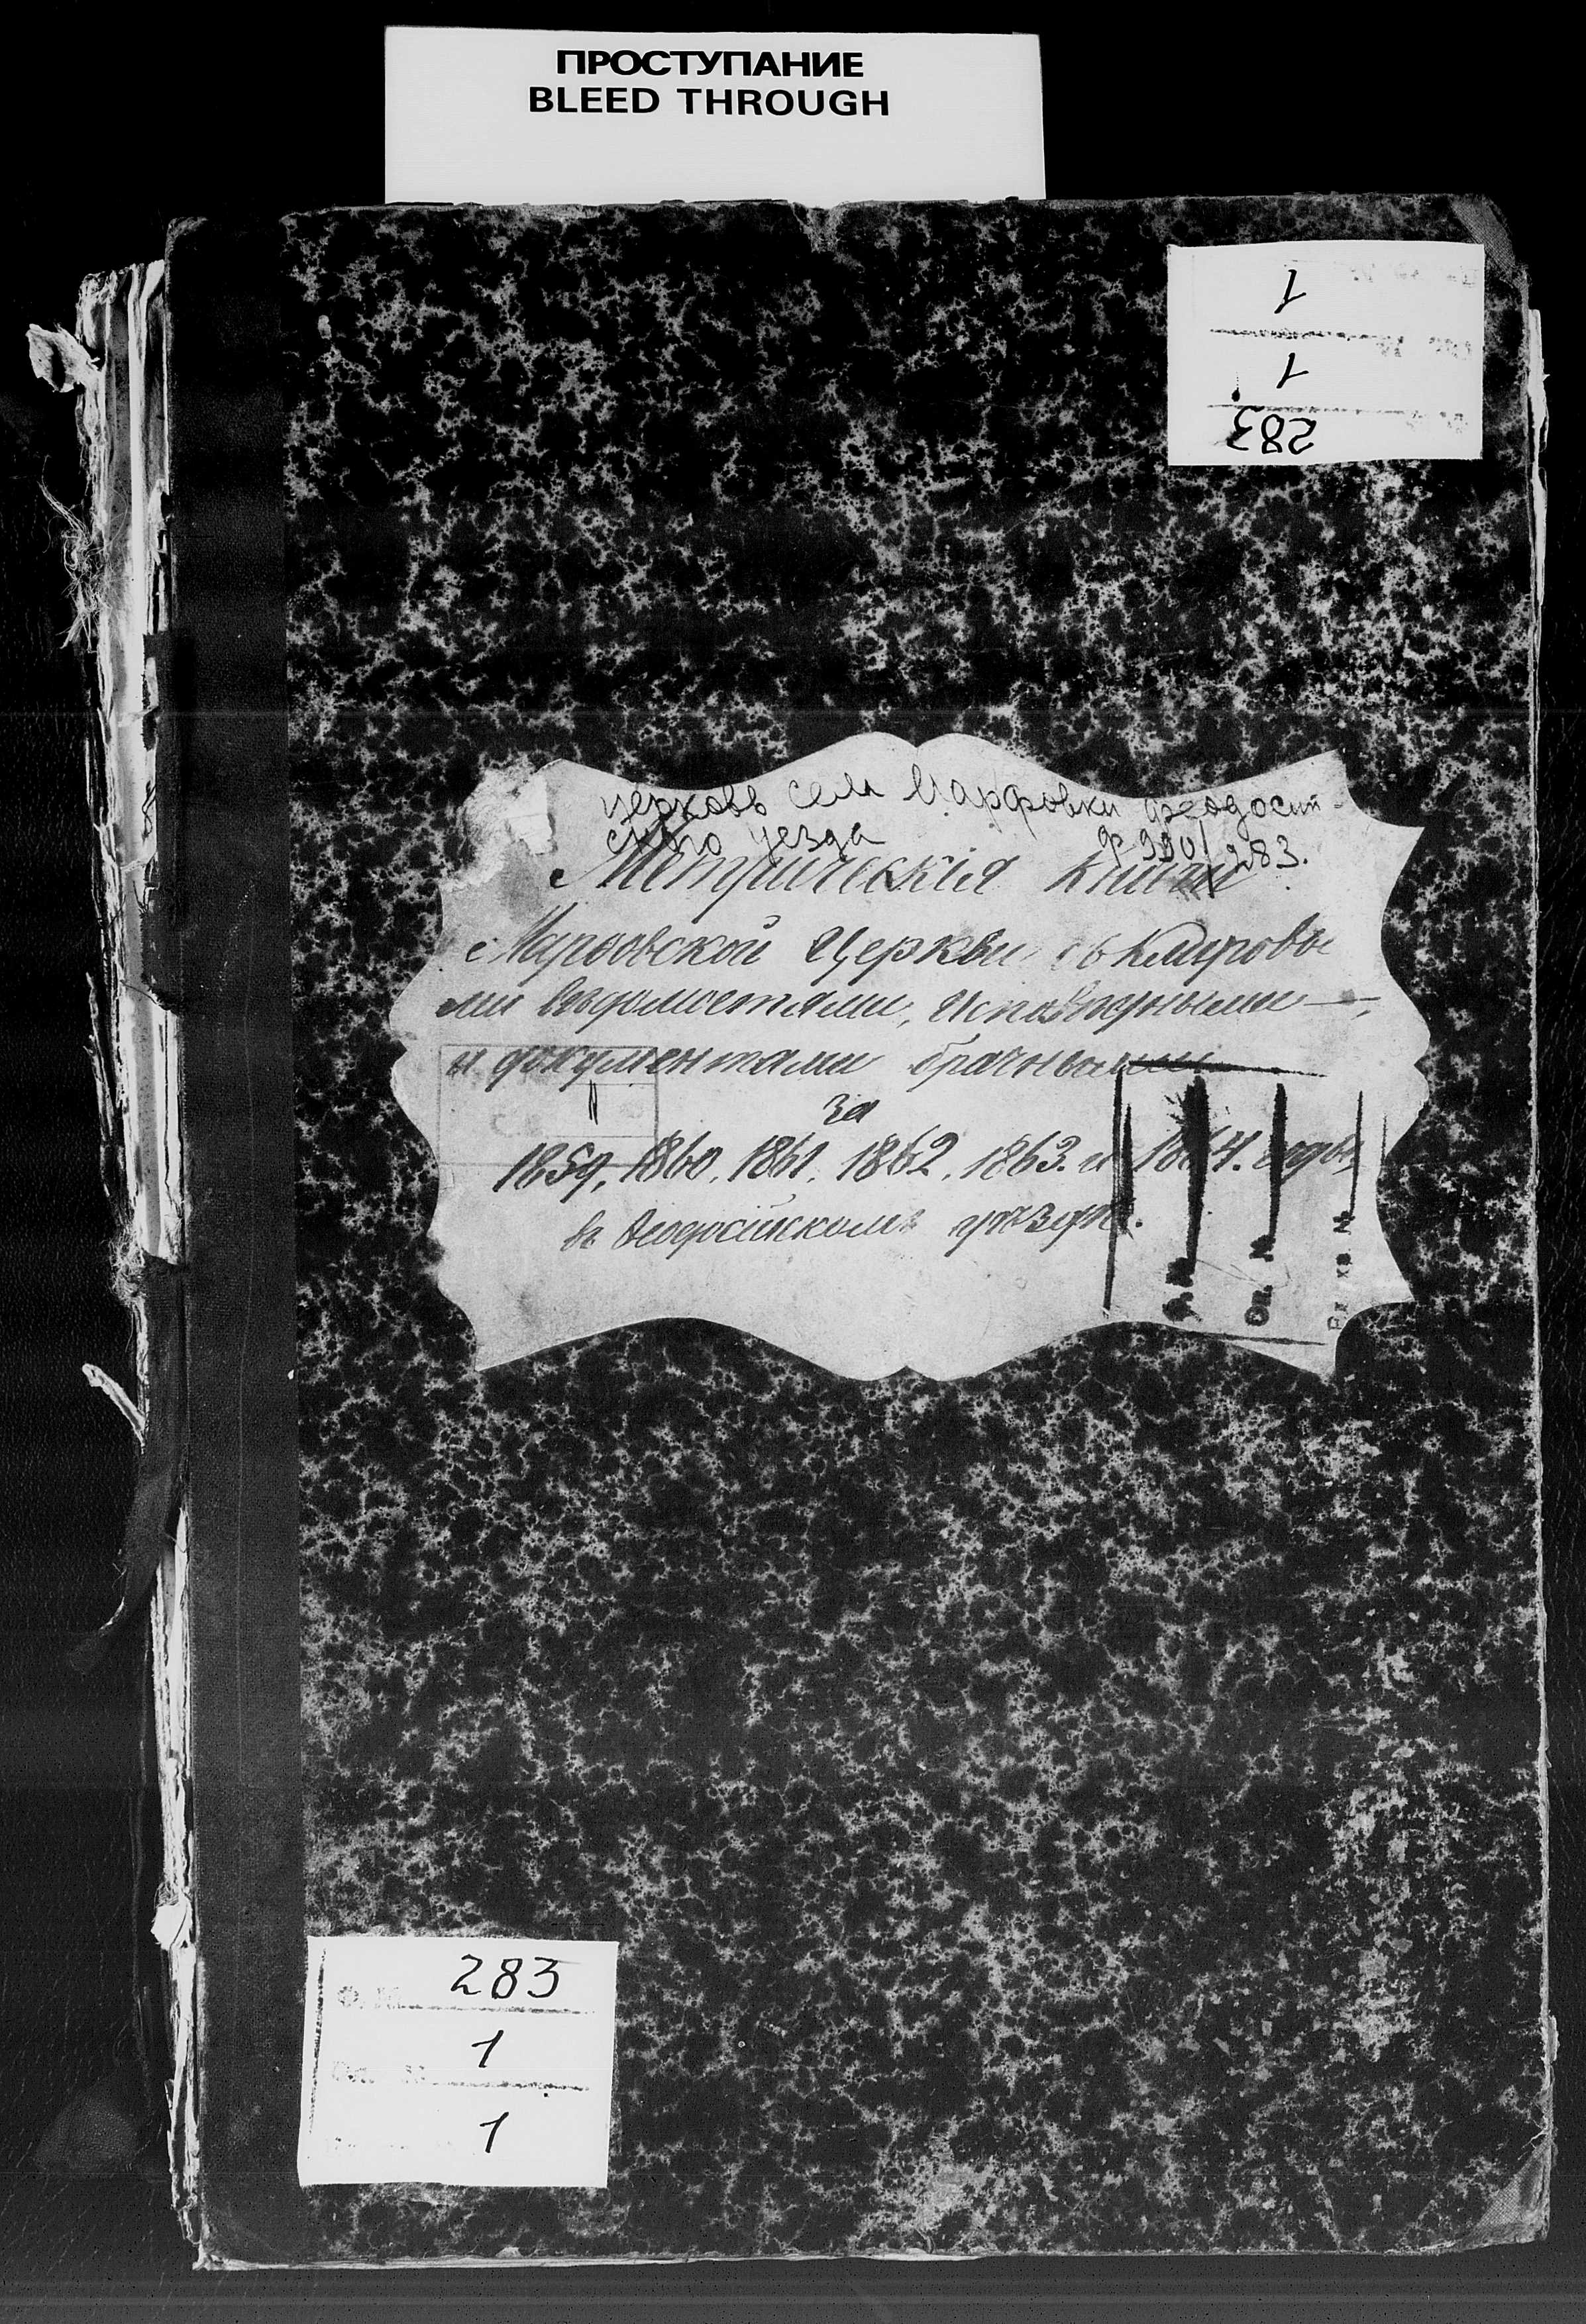 ПРОСТУПАНИЕ
BLEED THROUGH
1
1
283
церковь села Марфовки феодосий-
ского уезда
283.
Метрическія книги
Марѳовской Церкви съ Клировы
ми вѣдомостями, Исповѣдными —,
и документами брачными
за
1859, 1860, 1861, 1862, 1863. и 1864. годы,
въ Ѳеодосійскомъ уѣздѣ.
Ф. №
Оп. №
283
Ф. №
1
Оп. №
1